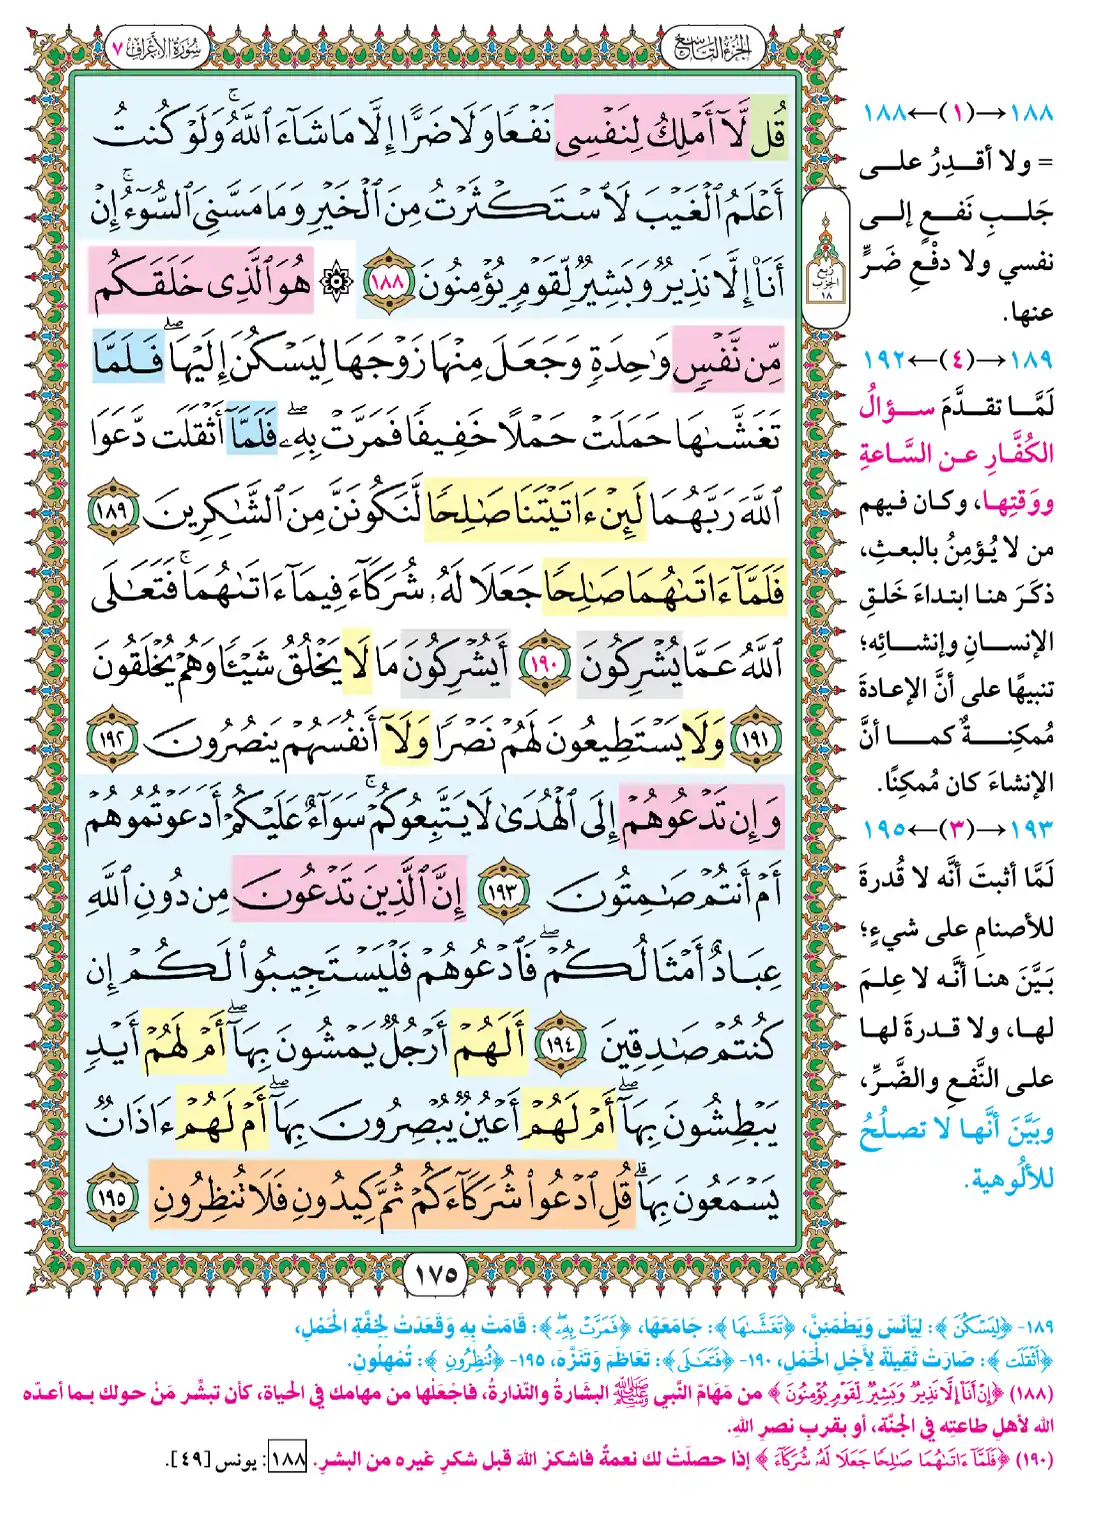 الجزء التاسع
سورة الأعراف ٧
قُل لَّآ أَمْلِكُ لِنَفْسِى نَفْعًا وَلَا ضَرًّا إِلَّا مَا شَآءَ ٱللَّهُ ۚ وَلَوْ كُنتُ
أَعْلَمُ ٱلْغَيْبَ لَٱسْتَكْثَرْتُ مِنَ ٱلْخَيْرِ وَمَا مَسَّنِىَ ٱلسُّوٓءُ ۚ إِنْ
أَنَا۠ إِلَّا نَذِيرٌ وَبَشِيرٌ لِّقَوْمٍ يُؤْمِنُونَ ١٨٨ ۞ هُوَ ٱلَّذِى خَلَقَكُم
مِّن نَّفْسٍ وَٰحِدَةٍ وَجَعَلَ مِنْهَا زَوْجَهَا لِيَسْكُنَ إِلَيْهَا ۖ فَلَمَّا
تَغَشَّىٰهَا حَمَلَتْ حَمْلًا خَفِيفًا فَمَرَّتْ بِهِۦ ۖ فَلَمَّآ أَثْقَلَت دَّعَوَا
ٱللَّهَ رَبَّهُمَا لَئِنْ ءَاتَيْتَنَا صَٰلِحًا لَّنَكُونَنَّ مِنَ ٱلشَّٰكِرِينَ ١٨٩
فَلَمَّآ ءَاتَىٰهُمَا صَٰلِحًا جَعَلَا لَهُۥ شُرَكَآءَ فِيمَآ ءَاتَىٰهُمَا ۚ فَتَعَٰلَى
ٱللَّهُ عَمَّا يُشْرِكُونَ ١٩٠ أَيُشْرِكُونَ مَا لَا يَخْلُقُ شَيْـًٔا وَهُمْ يُخْلَقُونَ
١٩١ وَلَا يَسْتَطِيعُونَ لَهُمْ نَصْرًا وَلَآ أَنفُسَهُمْ يَنصُرُونَ ١٩٢
وَإِن تَدْعُوهُمْ إِلَى ٱلْهُدَىٰ لَا يَتَّبِعُوكُمْ ۚ سَوَآءٌ عَلَيْكُمْ أَدَعَوْتُمُوهُمْ
أَمْ أَنتُمْ صَٰمِتُونَ ١٩٣ إِنَّ ٱلَّذِينَ تَدْعُونَ مِن دُونِ ٱللَّهِ
عِبَادٌ أَمْثَالُكُمْ ۖ فَٱدْعُوهُمْ فَلْيَسْتَجِيبُوا۟ لَكُمْ إِن
كُنتُمْ صَٰدِقِينَ ١٩٤ أَلَهُمْ أَرْجُلٌ يَمْشُونَ بِهَآ ۖ أَمْ لَهُمْ أَيْدٍ
يَبْطِشُونَ بِهَآ ۖ أَمْ لَهُمْ أَعْيُنٌ يُبْصِرُونَ بِهَآ ۖ أَمْ لَهُمْ ءَاذَانٌ
يَسْمَعُونَ بِهَا ۗ قُلِ ٱدْعُوا۟ شُرَكَآءَكُمْ ثُمَّ كِيدُونِ فَلَا تُنظِرُونِ ١٩٥
ربع
الحزب
١٨
١٧٥
١٨٨→(١)←١٨٨
= ولا أقدِرُ على
جَلبِ نَفعٍ إلى
نفسي ولا دفْعِ ضَرٍّ
عنها.
١٨٩→(٤)←١٩٢
لَمَّا تقدَّمَ سؤالُ
الكُفَّارِ عن السَّاعةِ
ووَقتِها، وكان فيهم
من لا يُؤمِنُ بالبعثِ،
ذكَرَ هنا ابتداءَ خَلقِ
الإنسانِ وإنشائِه؛
تنبيهًا على أنَّ الإعادةَ
مُمكِنةٌ كما أنَّ
الإنشاءَ كان مُمكِنًا.
١٩٣→(٣)←١٩٥
لَمَّا أثبتَ أنَّه لا قُدرةَ
للأصنامِ على شيءٍ؛
بَيَّنَ هنا أنَّه لا عِلمَ
لها، ولا قدرةَ لها
على النَّفعِ والضَّرِّ،
وبَيَّنَ أنَّها لا تصلُحُ
للألُوهية.
١٨٩- ﴿لِيَسْكُنَ﴾: لِيَأْنَسَ وَيَطْمَئِنَّ، ﴿تَغَشَّىٰهَا﴾: جَامَعَهَا، ﴿فَمَرَّتْ بِهِۦ﴾: قَامَتْ بِهِ وَقَعَدَتْ لِخِفَّةِ الْحَمْلِ،
﴿أَثْقَلَت﴾: صَارَتْ ثَقِيلَةً لِأَجْلِ الْحَمْلِ، ١٩٠- ﴿فَتَعَٰلَى﴾: تَعَاظَمَ وَتَنَزَّهَ، ١٩٥- ﴿تُنظِرُونِ﴾: تُمْهِلُونِ.
(١٨٨) ﴿إِنْ أَنَا۠ إِلَّا نَذِيرٌ وَبَشِيرٌ لِّقَوْمٍ يُؤْمِنُونَ﴾ من مَهَامِّ النَّبي ﷺ البشَارةُ والنّذارةُ، فاجْعَلها من مهامك في الحياة، كأن تبشِّر مَنْ حولك بما أعدّه
الله لأهلِ طاعتِه في الجنَّة، أو بقربِ نصرِ اللهِ.
(١٩٠) ﴿فَلَمَّآ ءَاتَىٰهُمَا صَٰلِحًا جَعَلَا لَهُۥ شُرَكَآءَ﴾ إذا حصلَتْ لك نعمةٌ فاشكرْ اللهَ قبل شكرِ غيره من البشرِ. ١٨٨: يونس [٤٩].